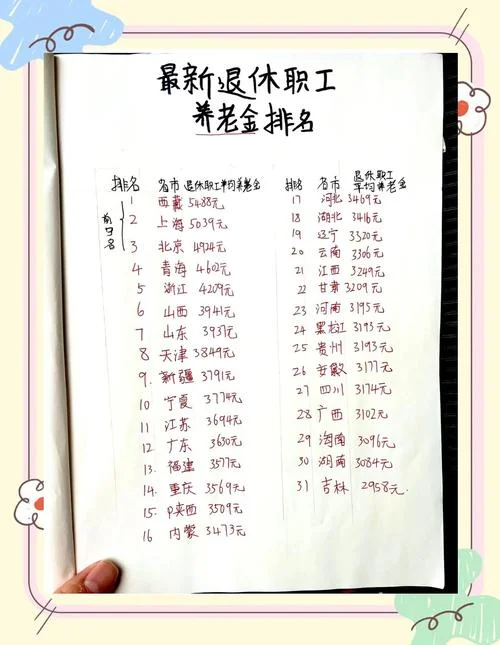 最新退休职工
养老金排名
排名 省市 退休职工平均养老金
前3名
1 西藏 5488元
2 上海 5039元
3 北京 4924元
4 青海 4602元
5 浙江 4209元
6 山西 3941元
7 山东 3937元
8 天津 3849元
9. 新疆 3791元
10 宁夏 3774元
11 江苏 3694元
12 广东 3630元
13. 福建 3577元
14. 重庆 3569元
15. 陕西 3509元
16 内蒙 3473元
排名 省市 退休职工
平均养老金
17 河北 3469元
18 湖北 3416元
19 辽宁 3320元
20 云南 3306元
21 江西 3249元
22 甘肃 3209元
23 河南 3195元
24 黑龙江 3193元
25 贵州 3193元
26 安徽 3177元
27 四川 3174元
28 广西 3102元
29 海南 3096元
30 湖南 3084元
31 吉林 2958元.